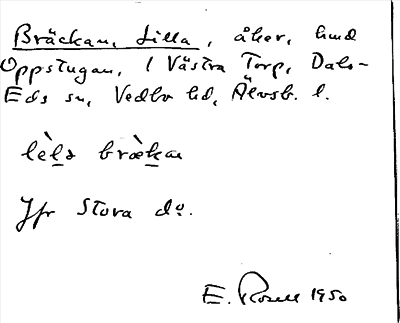 Bräckan, Lilla, åker, hmd
Oppstugan, 1 Västra Torp, Dals-
Eds sn, Vedbo hd, Älvsb. l.
lèla brækan
Jfr Stora do.
E. Rosell 1950